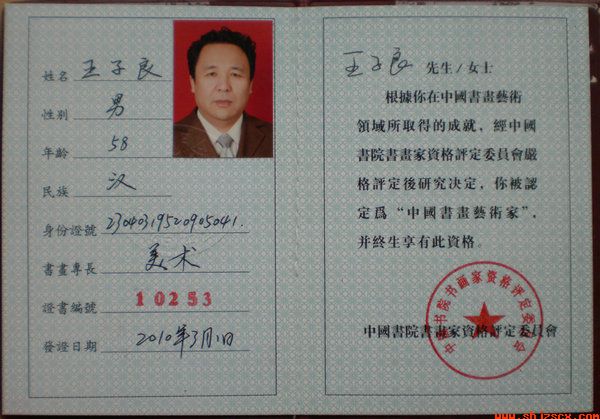 姓名 王子良
性别 男
年龄 58
民族 汉
身份證號 23040319520905041.
書畫專長 美术
證書编號 10253
發證日期 2010年3月1日
王子良 先生/女士
根據你在中國書畫藝術
領域所取得的成就，經中國
書院書畫家資格評定委員會嚴
格評定後研究决定，你被認
定爲“中國書畫藝術家”，
并终生享有此資格。
中國書院書畫家資格評定委員會
中國书院书画家资格评定委员会
www.shjzscx.com